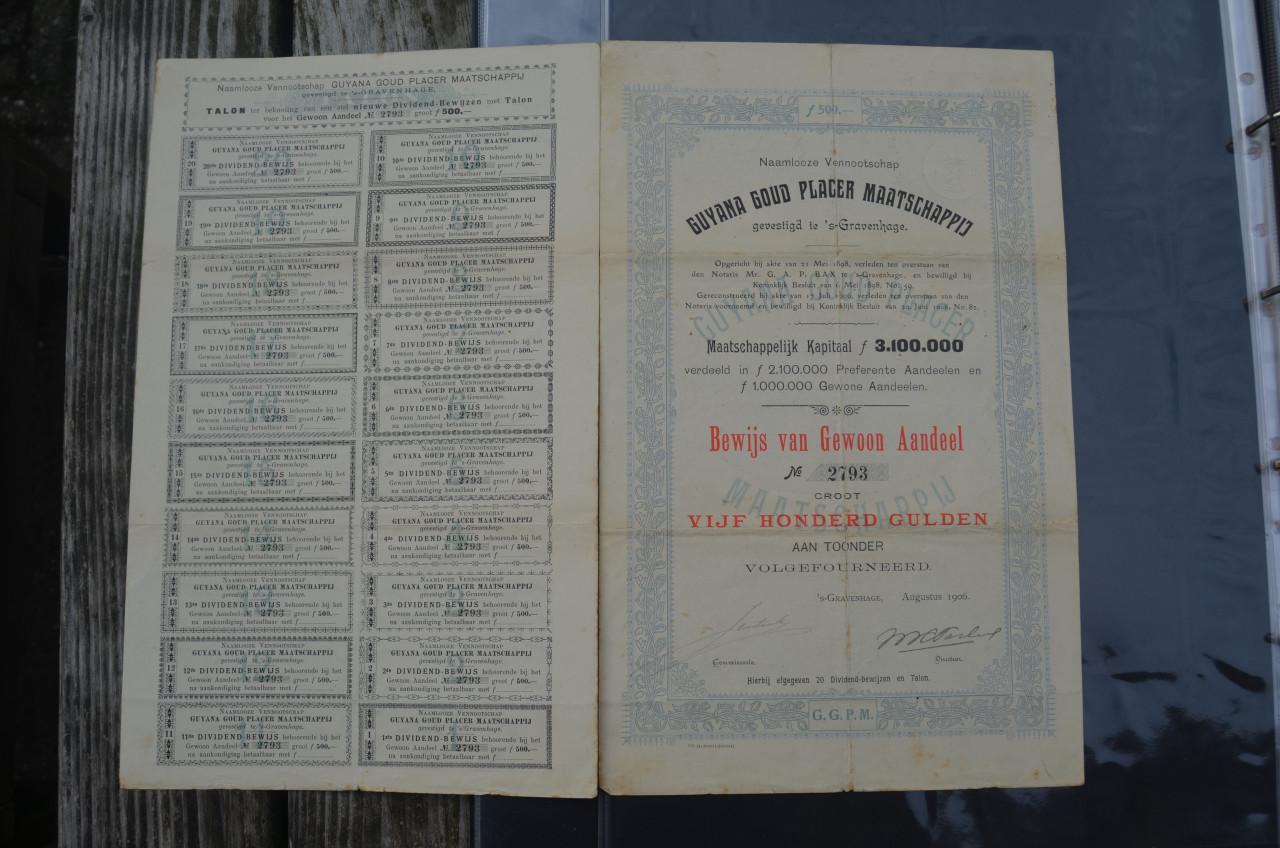 Naamlooze Vennootschap GUYANA GOUD PLACER MAATSCHAPPIJ
gevestigd te 's-GRAVENHAGE.
TALON ter bekoming van een stel nieuwe Dividend-Bewijzen met Talon
voor het Gewoon Aandeel № 2793 groot f 500.—
NAAMLOOZE VENNOOTSCHAP
GUYANA GOUD PLACER MAATSCHAPPIJ
gevestigd te 's-Gravenhage.
20 20ste DIVIDEND-BEWIJS behoorende bij het
Gewoon Aandeel № 2793 groot f 500.—
na aankondiging betaalbaar met f
NAAMLOOZE VENNOOTSCHAP
GUYANA GOUD PLACER MAATSCHAPPIJ
gevestigd te 's-Gravenhage.
19 19de DIVIDEND-BEWIJS behoorende bij het
Gewoon Aandeel № 2793 groot f 500.—
na aankondiging betaalbaar met f
NAAMLOOZE VENNOOTSCHAP
GUYANA GOUD PLACER MAATSCHAPPIJ
gevestigd te 's-Gravenhage.
18 18de DIVIDEND-BEWIJS behoorende bij het
Gewoon Aandeel № 2793 groot f 500.—
na aankondiging betaalbaar met f
NAAMLOOZE VENNOOTSCHAP
GUYANA GOUD PLACER MAATSCHAPPIJ
gevestigd te 's-Gravenhage.
17 17de DIVIDEND-BEWIJS behoorende bij het
Gewoon Aandeel № 2793 groot f 500.—
na aankondiging betaalbaar met f
NAAMLOOZE VENNOOTSCHAP
GUYANA GOUD PLACER MAATSCHAPPIJ
gevestigd te 's-Gravenhage.
16 16de DIVIDEND-BEWIJS behoorende bij het
Gewoon Aandeel № 2793 groot f 500.—
na aankondiging betaalbaar met f
NAAMLOOZE VENNOOTSCHAP
GUYANA GOUD PLACER MAATSCHAPPIJ
gevestigd te 's-Gravenhage.
15 15de DIVIDEND-BEWIJS behoorende bij het
Gewoon Aandeel № 2793 groot f 500.—
na aankondiging betaalbaar met f
NAAMLOOZE VENNOOTSCHAP
GUYANA GOUD PLACER MAATSCHAPPIJ
gevestigd te 's-Gravenhage.
14 14de DIVIDEND-BEWIJS behoorende bij het
Gewoon Aandeel № 2793 groot f 500.—
na aankondiging betaalbaar met f
NAAMLOOZE VENNOOTSCHAP
GUYANA GOUD PLACER MAATSCHAPPIJ
gevestigd te 's-Gravenhage.
13 13de DIVIDEND-BEWIJS behoorende bij het
Gewoon Aandeel № 2793 groot f 500.—
na aankondiging betaalbaar met f
NAAMLOOZE VENNOOTSCHAP
GUYANA GOUD PLACER MAATSCHAPPIJ
gevestigd te 's-Gravenhage.
12 12de DIVIDEND-BEWIJS behoorende bij het
Gewoon Aandeel № 2793 groot f 500.—
na aankondiging betaalbaar met f
NAAMLOOZE VENNOOTSCHAP
GUYANA GOUD PLACER MAATSCHAPPIJ
gevestigd te 's-Gravenhage.
11 11de DIVIDEND-BEWIJS behoorende bij het
Gewoon Aandeel № 2793 groot f 500.—
na aankondiging betaalbaar met f
NAAMLOOZE VENNOOTSCHAP
GUYANA GOUD PLACER MAATSCHAPPIJ
gevestigd te 's-Gravenhage.
10 10de DIVIDEND-BEWIJS behoorende bij het
Gewoon Aandeel № 2793 groot f 500.—
na aankondiging betaalbaar met f
NAAMLOOZE VENNOOTSCHAP
GUYANA GOUD PLACER MAATSCHAPPIJ
gevestigd te 's-Gravenhage.
9 9de DIVIDEND-BEWIJS behoorende bij het
Gewoon Aandeel № 2793 groot f 500.—
na aankondiging betaalbaar met f
NAAMLOOZE VENNOOTSCHAP
GUYANA GOUD PLACER MAATSCHAPPIJ
gevestigd te 's-Gravenhage.
8 8ste DIVIDEND-BEWIJS behoorende bij het
Gewoon Aandeel № 2793 groot f 500.—
na aankondiging betaalbaar met f
NAAMLOOZE VENNOOTSCHAP
GUYANA GOUD PLACER MAATSCHAPPIJ
gevestigd te 's-Gravenhage.
7 7de DIVIDEND-BEWIJS behoorende bij het
Gewoon Aandeel № 2793 groot f 500.—
na aankondiging betaalbaar met f
NAAMLOOZE VENNOOTSCHAP
GUYANA GOUD PLACER MAATSCHAPPIJ
gevestigd te 's-Gravenhage.
6 6de DIVIDEND-BEWIJS behoorende bij het
Gewoon Aandeel № 2793 groot f 500.—
na aankondiging betaalbaar met f
NAAMLOOZE VENNOOTSCHAP
GUYANA GOUD PLACER MAATSCHAPPIJ
gevestigd te 's-Gravenhage.
5 5de DIVIDEND-BEWIJS behoorende bij het
Gewoon Aandeel № 2793 groot f 500.—
na aankondiging betaalbaar met f
NAAMLOOZE VENNOOTSCHAP
GUYANA GOUD PLACER MAATSCHAPPIJ
gevestigd te 's-Gravenhage.
4 4de DIVIDEND-BEWIJS behoorende bij het
Gewoon Aandeel № 2793 groot f 500.—
na aankondiging betaalbaar met f
NAAMLOOZE VENNOOTSCHAP
GUYANA GOUD PLACER MAATSCHAPPIJ
gevestigd te 's-Gravenhage.
3 3de DIVIDEND-BEWIJS behoorende bij het
Gewoon Aandeel № 2793 groot f 500.—
na aankondiging betaalbaar met f
NAAMLOOZE VENNOOTSCHAP
GUYANA GOUD PLACER MAATSCHAPPIJ
gevestigd te 's-Gravenhage.
2 2de DIVIDEND-BEWIJS behoorende bij het
Gewoon Aandeel № 2793 groot f 500.—
na aankondiging betaalbaar met f
NAAMLOOZE VENNOOTSCHAP
GUYANA GOUD PLACER MAATSCHAPPIJ
gevestigd te 's-Gravenhage.
1 1ste DIVIDEND-BEWIJS behoorende bij het
Gewoon Aandeel № 2793 groot f 500.—
na aankondiging betaalbaar met f
f 500.—
Naamlooze Vennootschap
GUYANA GOUD PLACER MAATSCHAPPIJ
gevestigd te 's-Gravenhage.
Opgericht bij akte van 21 Mei 1898, verleden ten overstaan van
den Notaris Mr. G. A. P. BAX te 's-Gravenhage, en bewilligd bij
Koninklijk Besluit van 6 Mei 1898, No. 59.
Gereconstrueerd bij akte van 17 Juli 1906, verleden ten overstaan van den
Notaris voornoemd en bewilligd bij Koninklijk Besluit van Juni No. 82.
GUYANA GOUD PLACER
Maatschappelijk Kapitaal f 3.100.000
verdeeld in f 2.100.000 Preferente Aandeelen en
f 1.000.000 Gewone Aandeelen.
Bewijs van Gewoon Aandeel
№ 2793
MAATSCHAPPIJ
GROOT
VIJF HONDERD GULDEN
AAN TOONDER
VOLGEFOURNEERD.
's-GRAVENHAGE, Augustus 1906.
Commissaris. Directeur.
Hierbij afgegeven 20 Dividend-bewijzen en Talon.
G. G. P. M.